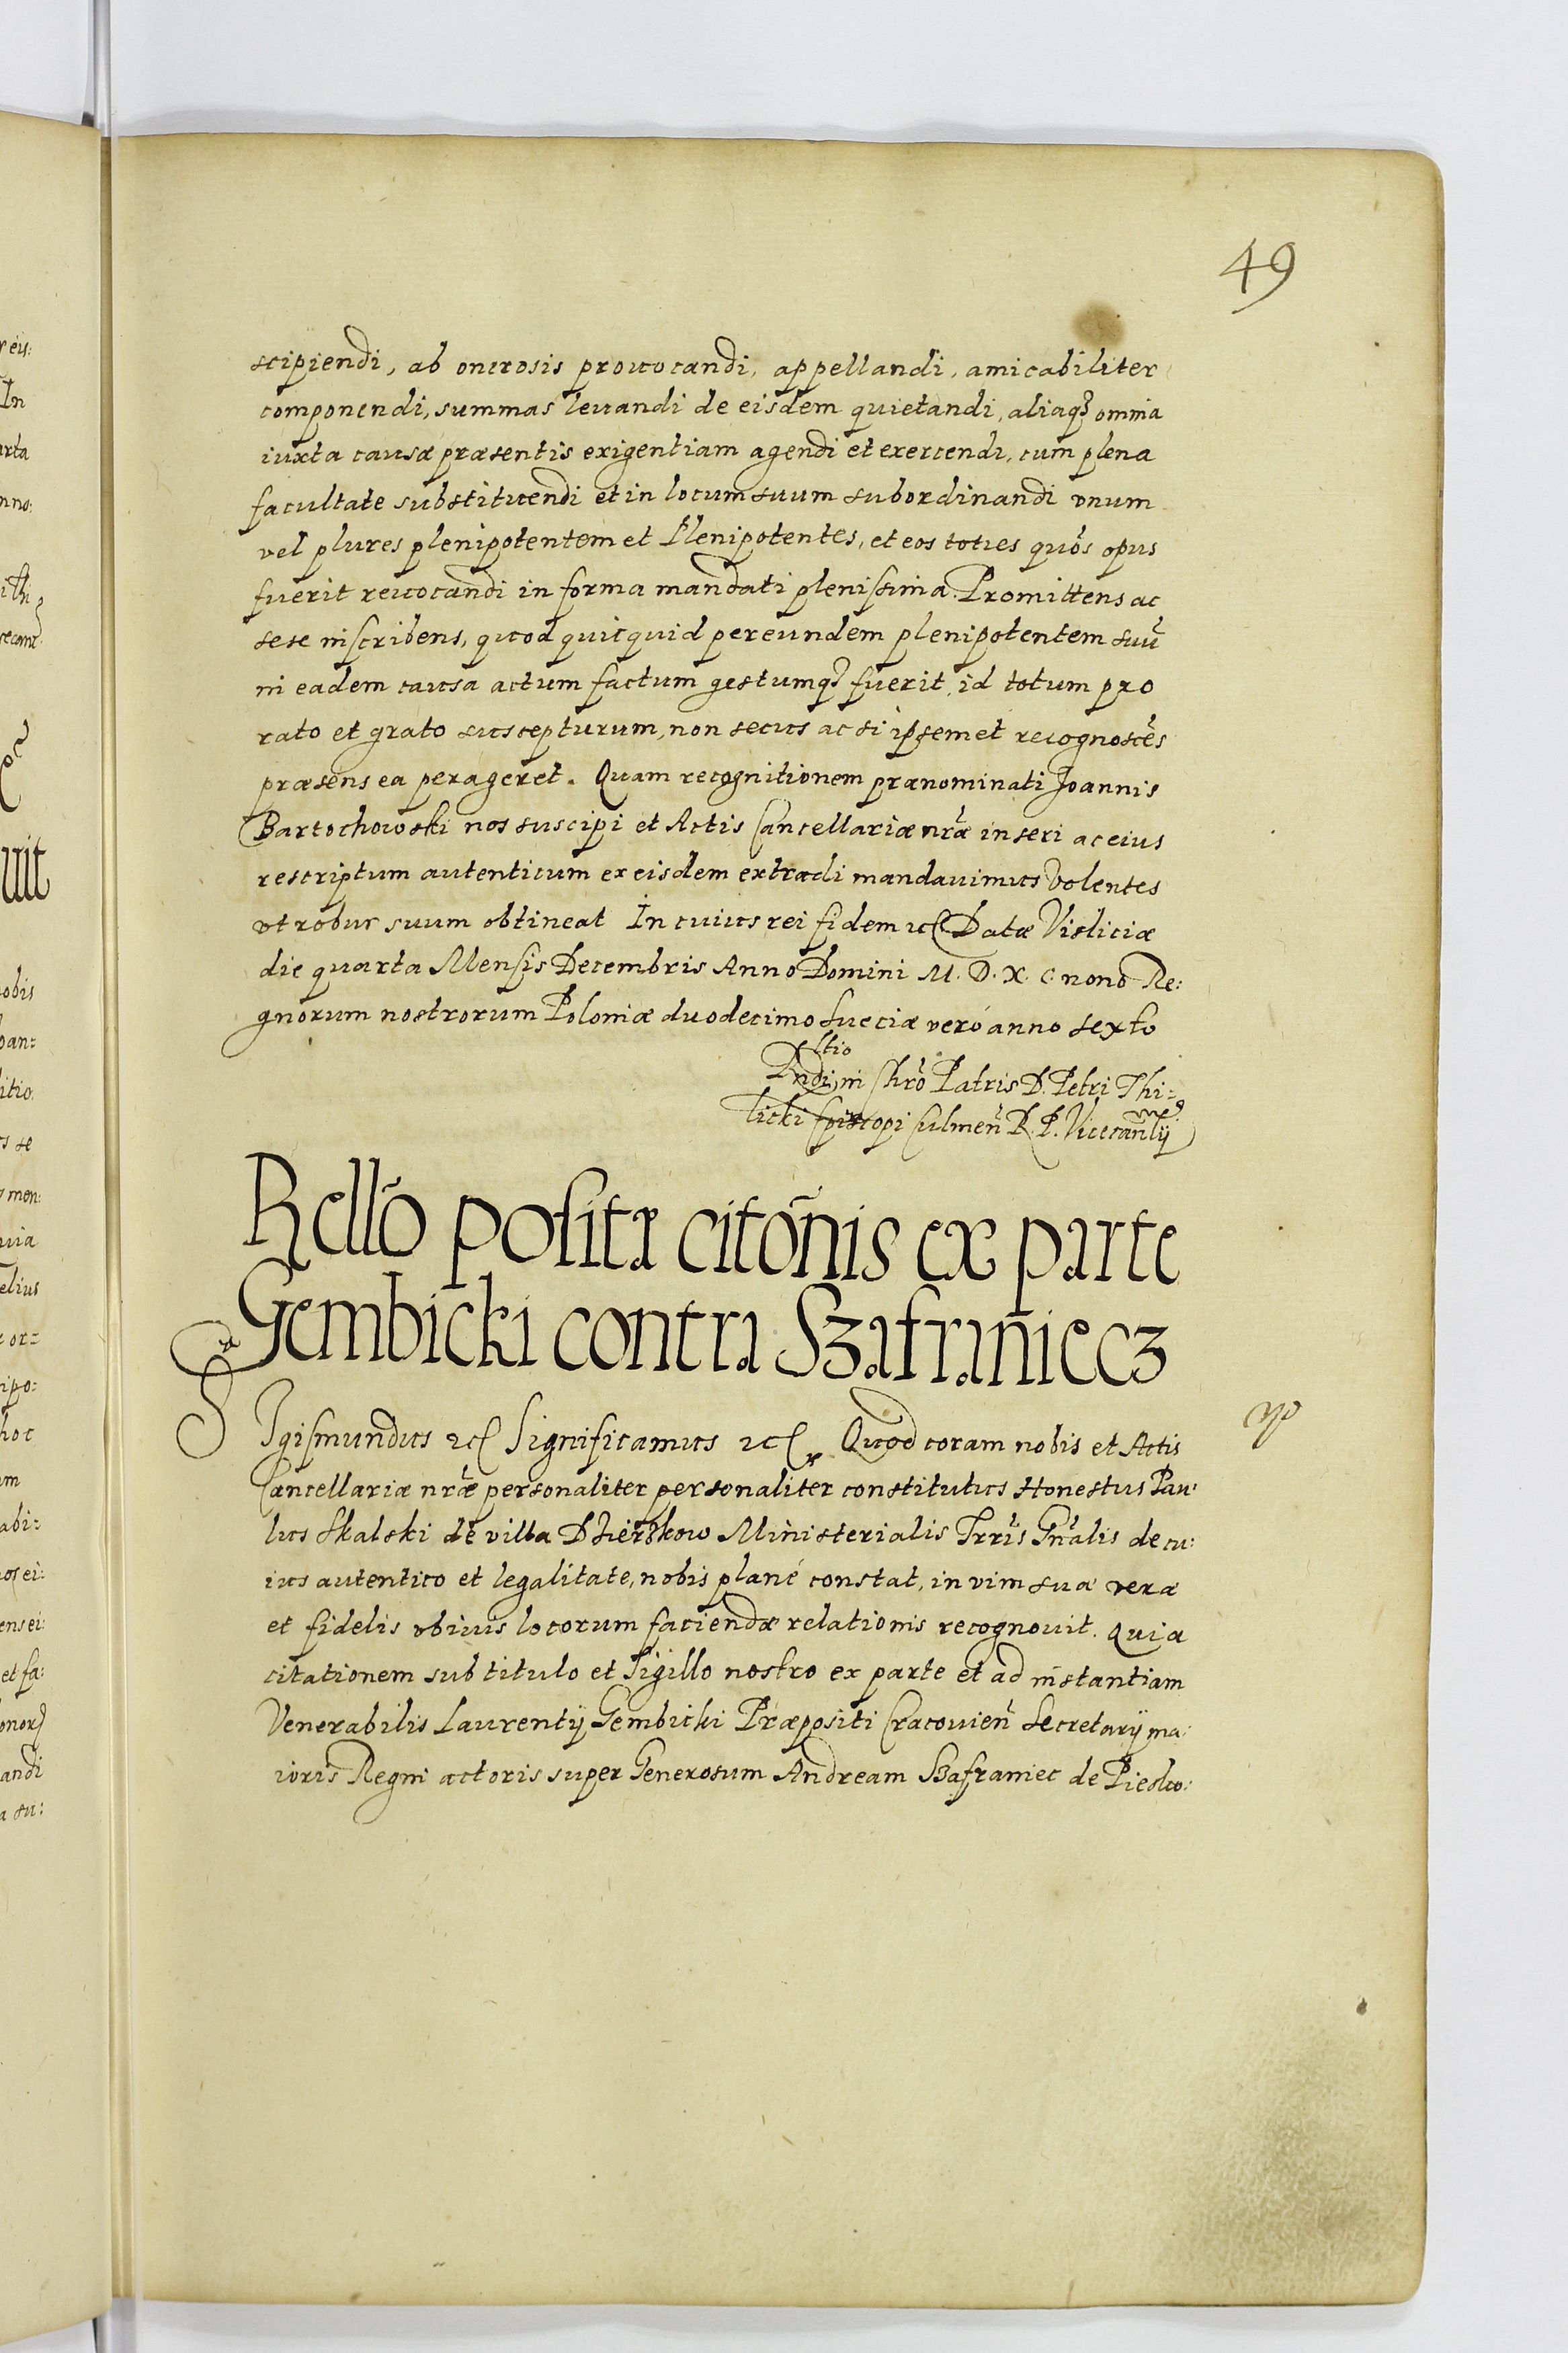 49
scipiendi, ab onerosis prouocandi, appellandi, amicabiliter
componendi, summas leuandi de eisdem quietandi, aliaqꝫ omnia
iuxta causæ præsentis exigentiam agendi et exercendi, cum plena
facultate substituendi et in locum suum subordinandi vnum
vel plures plenipotentem et Plenipotentes, et eos toties quõs opus
fuerit reuocandi in forma mandati plenissima. Promittens ac
sese inscribens, quod quicquid per eundem plenipotentem suũ
in eadem causa actum factum gestumqꝫ fuerit, id totum pro
rato et grato suscepturum, non secus ac si ipsemet recognoscẽs
præsens ea perageret. Quam recognitionem prænominati Joannis
Bartochowski nos suscipi et Actis Cancellariæ nr̃æ inseri ac eius
rescriptum autenticum ex eisdem extradi mandauimus Volentes
vt robur suum obtineat In cuius rei fidem ꝛc Datæ Visliciæ
die quarta Mensis Decembris Anno Domini M. D. X. C. nono Re:
gnorum nostrorum Poloniæ duodecimo Sueciæ veró anno sexto
Rltio
Rndi, in Chrõ Patris D. Petri Thi=
licki Episcopi Culmeñ R. P. Vicecanlÿ
Rellõ posita citõnis ex parte
Gembicki contra Szafraniecz
SIgismundus ꝛc Significamus ꝛc. Quod coram nobis et Actis
Cancellariæ nr̃æ personaliter personaliter constitutus Honestus Pau:
lus Skalski de villa Dzierzkow Ministerialis Trr̃is Gñalis de cu:
ius autentico et legalitate, nobis plané constat, in vim suæ veræ
et fidelis vbiuis locorum faciendæ relationis recognouit. Quia
citationem sub titulo et Sigillo nostro ex parte et ad instantiam
Venerabilis Laurentÿ Gembicki Præpositi Cracouieñ Secretarÿ ma:
ioris Regni actoris super Generosum Andream Szafraniec de Piesko: